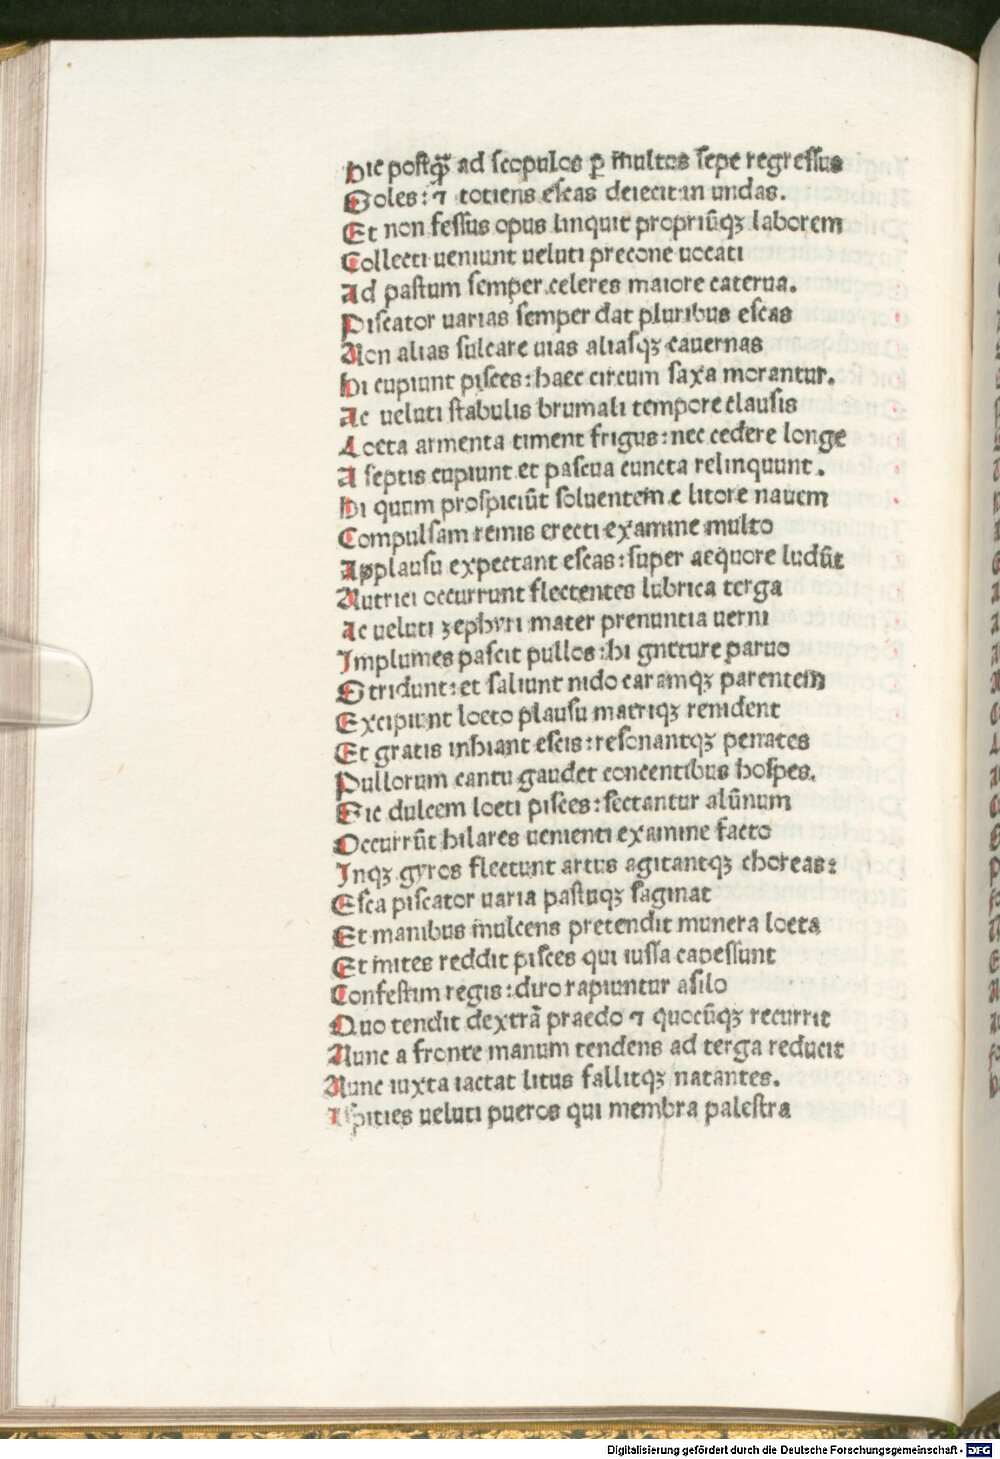 Hic postq̃ ad scopulos ꝑ multos sepe regressus
Soles: ⁊ totiens escas deiecit in undas.
Et non fessus opus linquit propriũqꝫ laborem
Collecti ueniunt ueluti precone uocati
Ad pastum semper celeres maiore caterua.
Piscator uarias semper dat pluribus escas
Non alias sulcare uias aliasqꝫ cauernas
Hi cupiunt pisces: haec circum saxa morantur.
Ac ueluti stabulis brumali tempore clausis
Loeta armenta timent frigus: nec cedere longe
A septis cupiunt et pascua cuncta relinquunt.
Hi quum prospiciũt soluentem e litore nauem
Compulsam remis erecti examine multo
Applausu expectant escas: super aequore ludũt
Nutrici occurrunt flectentes lubrica terga
Ac ueluti zephyri mater prenuntia uerni
Implumes pascit pullos: hi gutture paruo
Stridunt: et saliunt nido caramqꝫ parentem
Excipiunt loeto plausu matriqꝫ renident
Et gratis inhiant escis: resonantqꝫ penates
Pullorum cantu gaudet concentibus hospes.
Sic dulcem loeti pisces: sectantur alũnum
Occurrũt hilares uenienti examine facto
Inqꝫ gyros flectunt artus agitantqꝫ choreas:
Esca piscator uaria pastuqꝫ saginat
Et manibus mulcens pretendit munera loeta
Et mites reddit pisces qui iussa capessunt
Confestim regis: diro rapiuntur asilo
Quo tendit dextrã praedo ⁊ quocũqꝫ recurrit
Nunc a fronte manum tendens ad terga reducit
Nunc iuxta iactat litus fallitqꝫ natantes.
Aspities ueluti pueros qui membra palestra
Digitalisierung gefördert durch die Deutsche Forschungsgemeinschaft - DFG